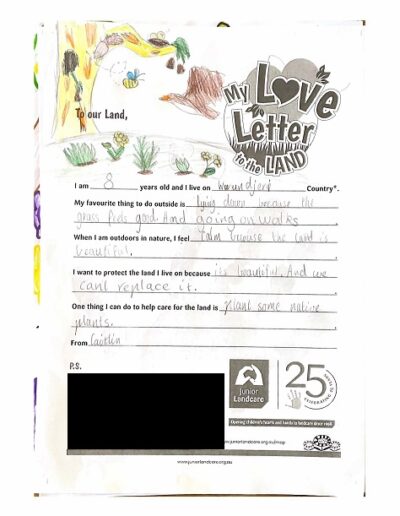 My Love
Letter
to the LAND
To our Land,
I am 8 years old and I live on Wurundjeri Country*.
My favourite thing to do outside is lying down because the
grass feels good. And going on walks
When I am outdoors in nature, I feel calm because the land is
beautiful.
I want to protect the land I live on because its beautiful. And we
cant replace it.
One thing I can do to help care for the land is plant some native
plants.
From Caitlin
P.S.
Junior
Landcare
25
YEARS
Opening children's hearts and minds to landcare since 1998
www.juniorlandcare.org.au/map
www.juniorlandcare.org.au